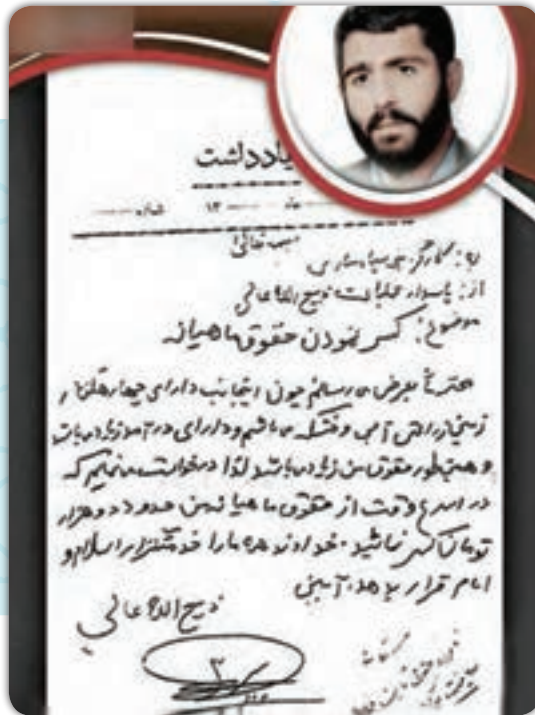 یادداشت
شماره ۱۳
بسمه تعالی
به: کارگزینی سپاه ساری
از: پاسدار عملیات ذبیح الله عالی
موضوع: کسر نمودن حقوق ماهیانه
محترماً بعرض می‌رسانم چون اینجانب دارای چهار هکتار
زمین زراعتی آبی و خشکه می‌باشم و دارای درآمد زیاد می‌باشد
و همینطور حقوق من زیاد می‌باشد لذا درخواست می‌نمایم که
در اسرع وقت از حقوق ماهیانه من حدود دو هزار
تومان کسر نمائید. خداوند همه ما را خدمتگزار اسلام و
امام قرار بدهد. آمین
ذبیح الله عالی